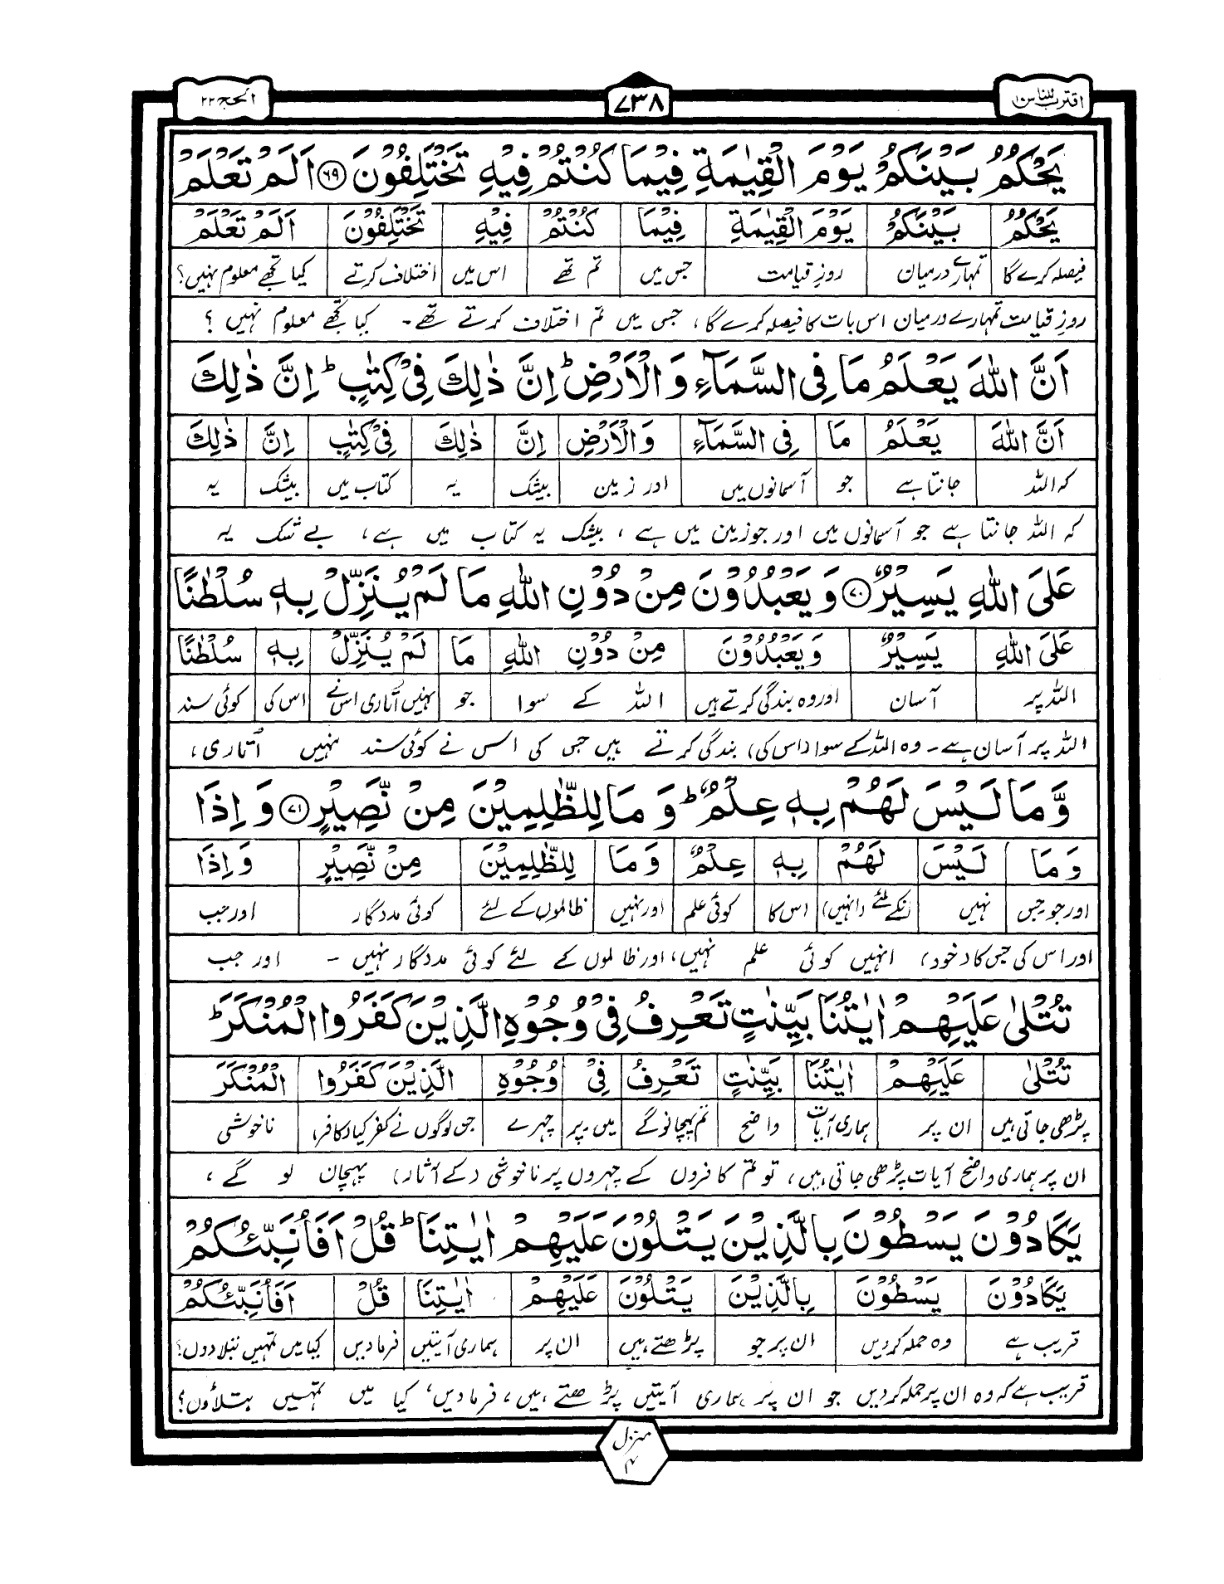 اقترب للناس ۱۷
۷۳۸
الحج ۲۲
يَحْكُمُ بَيْنَكُمْ يَوْمَ الْقِيٰمَةِ فِيْمَا كُنْتُمْ فِيْهِ تَخْتَلِفُوْنَ ۶۹ اَلَمْ تَعْلَمْ
يَحْكُمُ بَيْنَكُمْ يَوْمَ الْقِيٰمَةِ فِيْمَا كُنْتُمْ فِيْهِ تَخْتَلِفُوْنَ اَلَمْ تَعْلَمْ
فیصلہ کرے گا تمہارے درمیان روزِ قیامت جس میں تم تھے اس میں اختلاف کرتے کیا تجھے معلوم نہیں؟
روزِ قیامت تمہارے درمیان اس بات کا فیصلہ کرے گا، جس میں تم اختلاف کرتے تھے۔ کیا تجھے معلوم نہیں ؟
اَنَّ اللّٰهَ يَعْلَمُ مَا فِى السَّمَآءِ وَ الْاَرْضِ ؕ اِنَّ ذٰلِكَ فِىْ كِتٰبٍ ؕ اِنَّ ذٰلِكَ
اَنَّ اللّٰهَ يَعْلَمُ مَا فِى السَّمَآءِ وَ الْاَرْضِ اِنَّ ذٰلِكَ فِىْ كِتٰبٍ اِنَّ ذٰلِكَ
کہ اللہ جانتا ہے جو آسمانوں میں اور زمین بیشک یہ کتاب میں بیشک یہ
کہ اللہ جانتا ہے جو آسمانوں میں اور جو زمین میں ہے ، بیشک یہ کتاب میں ہے، بے شک یہ
عَلَى اللّٰهِ يَسِيْرٌ ۷۰ وَ يَعْبُدُوْنَ مِنْ دُوْنِ اللّٰهِ مَا لَمْ يُنَزِّلْ بِهٖ سُلْطٰنًا
عَلَى اللّٰهِ يَسِيْرٌ وَ يَعْبُدُوْنَ مِنْ دُوْنِ اللّٰهِ مَا لَمْ يُنَزِّلْ بِهٖ سُلْطٰنًا
اللہ پر آسان اور وہ بندگی کرتے ہیں اللہ کے سوا جو نہیں اُتاری اس نے اس کی کوئی سند
اللہ پر آسان ہے۔ وہ اللہ کے سوا (اس کی) بندگی کرتے ہیں جس کی اس نے کوئی سند نہیں اُتاری،
وَّ مَا لَيْسَ لَهُمْ بِهٖ عِلْمٌ ؕ وَ مَا لِلظّٰلِمِيْنَ مِنْ نَّصِيْرٍ ۷۱ وَ اِذَا
وَ مَا لَيْسَ لَهُمْ بِهٖ عِلْمٌ وَ مَا لِلظّٰلِمِيْنَ مِنْ نَّصِيْرٍ وَ اِذَا
اور جو جس نہیں انکے لئے (انہیں) اس کا کوئی علم اور نہیں ظالموں کے لئے کوئی مددگار اور جب
اور اس کی جس کا (خود) انہیں کوئی علم نہیں، اور ظالموں کے لئے کوئی مددگار نہیں - اور جب
تُتْلٰى عَلَيْهِمْ اٰيٰتُنَا بَيِّنٰتٍ تَعْرِفُ فِىْ وُجُوْهِ الَّذِيْنَ كَفَرُوا الْمُنْكَرَ ؕ
تُتْلٰى عَلَيْهِمْ اٰيٰتُنَا بَيِّنٰتٍ تَعْرِفُ فِىْ وُجُوْهِ الَّذِيْنَ كَفَرُوا الْمُنْكَرَ
پڑھی جاتی ہیں ان پر ہماری آیات واضح تم پہچانو گے میں۔پر چہرے جن لوگوں نے کفر کیا (کافر) ناخوشی
ان پر ہماری واضح آیات پڑھی جاتی ہیں، تو تم کافروں کے چہروں پر ناخوشی (کے آثار) پہچان لو گے ،
يَكَادُوْنَ يَسْطُوْنَ بِالَّذِيْنَ يَتْلُوْنَ عَلَيْهِمْ اٰيٰتِنَا ؕ قُلْ اَفَاُنَبِّئُكُمْ
يَكَادُوْنَ يَسْطُوْنَ بِالَّذِيْنَ يَتْلُوْنَ عَلَيْهِمْ اٰيٰتِنَا قُلْ اَفَاُنَبِّئُكُمْ
قریب ہے وہ حملہ کر دیں ان پر جو پڑھتے ہیں ان پر ہماری آیتیں فرما دیں کیا میں تمہیں بتلا دوں؟
قریب ہے کہ وہ ان پر حملہ کر دیں جو ان پر ہماری آیتیں پڑھتے ہیں، فرما دیں' کیا میں تمہیں بتلاؤں؟
منزل ۴